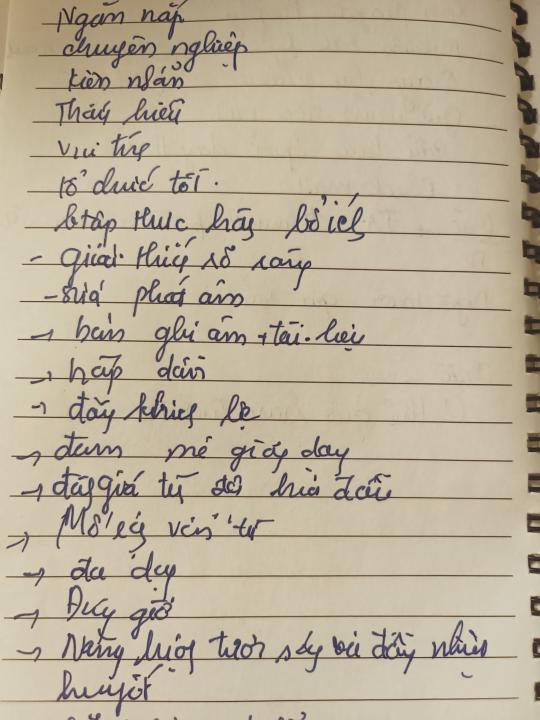 Ngăn nắp
chuyên nghiệp
kiên nhẫn
Thấu hiểu
vui tính
tổ chức tốt.
btập thực hành bổ ích
- giải thích rõ ràng
- sửa phát âm
→ bản ghi âm + tài liệu
→ hấp dẫn
→ đầy khích lệ
→ đam mê giảng dạy
→ đánh giá từ đầu
→ vốn từ
→ đa dạng
→ Đúng giờ
→ Năng lượng tươi sáng và đầy nhiệt
huyết